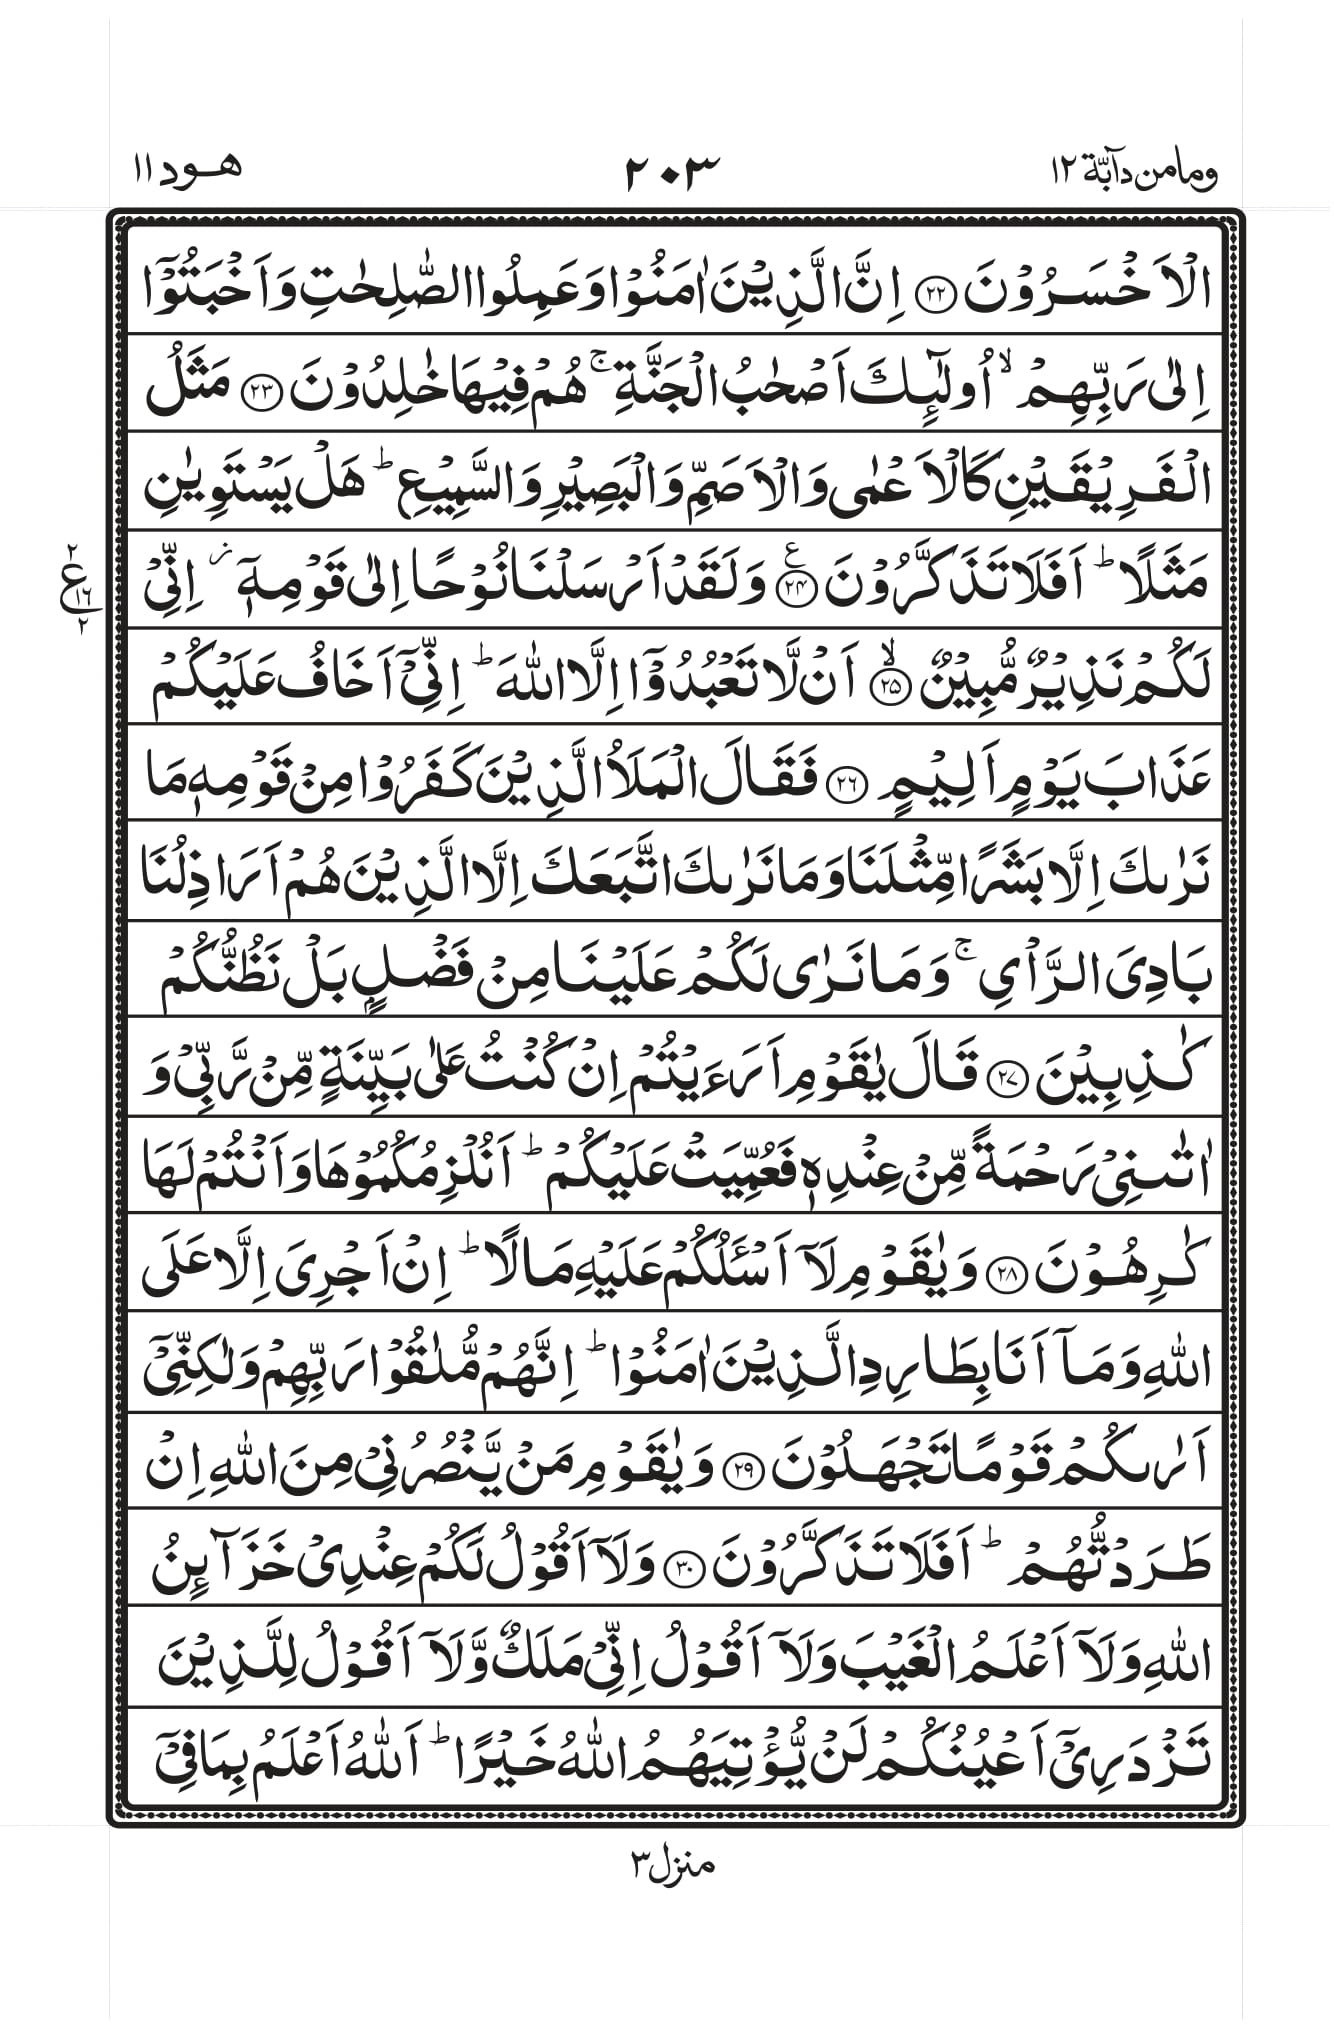 ومامن دآبّة ١٢
٢٠٣
هود ١١
الۡاَخۡسَرُوۡنَ ﴿٢٢﴾ اِنَّ الَّذِيۡنَ اٰمَنُوۡا وَعَمِلُوا الصّٰلِحٰتِ وَاَخۡبَتُوۡۤا
اِلٰى رَبِّهِمۡ ۙ اُولٰٓئِكَ اَصۡحٰبُ الۡجَنَّةِ ۚ هُمۡ فِيۡهَا خٰلِدُوۡنَ ﴿٢٣﴾ مَثَلُ
الۡفَرِيۡقَيۡنِ كَالۡاَعۡمٰى وَالۡاَصَمِّ وَالۡبَصِيۡرِ وَالسَّمِيۡعِ ؕ هَلۡ يَسۡتَوِيٰنِ
مَثَلًا ؕ اَفَلَا تَذَكَّرُوۡنَ ﴿٢٤﴾ ع وَلَقَدۡ اَرۡسَلۡنَا نُوۡحًا اِلٰى قَوۡمِهٖۤ ز اِنِّىۡ
ع ٢ ١٦ ٢
لَكُمۡ نَذِيۡرٌ مُّبِيۡنٌ ۙ﴿٢٥﴾ اَنۡ لَّا تَعۡبُدُوۡۤا اِلَّا اللّٰهَ ؕ اِنِّىۡۤ اَخَافُ عَلَيۡكُمۡ
عَذَابَ يَوۡمٍ اَلِيۡمٍ ﴿٢٦﴾ فَقَالَ الۡمَلَاُ الَّذِيۡنَ كَفَرُوۡا مِنۡ قَوۡمِهٖ مَا
نَرٰٮكَ اِلَّا بَشَرًا مِّثۡلَنَا وَمَا نَرٰٮكَ اتَّبَعَكَ اِلَّا الَّذِيۡنَ هُمۡ اَرَاذِلُنَا
بَادِىَ الرَّاۡىِ ۚ وَمَا نَرٰى لَكُمۡ عَلَيۡنَا مِنۡ فَضۡلٍۭ بَلۡ نَظُنُّكُمۡ
كٰذِبِيۡنَ ﴿٢٧﴾ قَالَ يٰقَوۡمِ اَرَءَيۡتُمۡ اِنۡ كُنۡتُ عَلٰى بَيِّنَةٍ مِّنۡ رَّبِّىۡ وَ
اٰتٰٮنِىۡ رَحۡمَةً مِّنۡ عِنۡدِهٖ فَعُمِّيَتۡ عَلَيۡكُمۡ ؕ اَنُلۡزِمُكُمُوۡهَا وَاَنۡتُمۡ لَهَا
كٰرِهُوۡنَ ﴿٢٨﴾ وَيٰقَوۡمِ لَاۤ اَسۡئَلُكُمۡ عَلَيۡهِ مَالًا ؕ اِنۡ اَجۡرِىَ اِلَّا عَلَى
اللّٰهِ وَمَاۤ اَنَا بِطَارِدِ الَّذِيۡنَ اٰمَنُوۡا ؕ اِنَّهُمۡ مُّلٰقُوۡا رَبِّهِمۡ وَلٰكِنِّىۡۤ
اَرٰٮكُمۡ قَوۡمًا تَجۡهَلُوۡنَ ﴿٢٩﴾ وَيٰقَوۡمِ مَنۡ يَّنۡصُرُنِىۡ مِنَ اللّٰهِ اِنۡ
طَرَدتُّهُمۡ ؕ اَفَلَا تَذَكَّرُوۡنَ ﴿٣٠﴾ وَلَاۤ اَقُوۡلُ لَكُمۡ عِنۡدِىۡ خَزَآئِنُ
اللّٰهِ وَلَاۤ اَعۡلَمُ الۡغَيۡبَ وَلَاۤ اَقُوۡلُ اِنِّىۡ مَلَكٌ وَّلَاۤ اَقُوۡلُ لِلَّذِيۡنَ
تَزۡدَرِىۡۤ اَعۡيُنُكُمۡ لَنۡ يُّؤۡتِيَهُمُ اللّٰهُ خَيۡرًا ؕ اَللّٰهُ اَعۡلَمُ بِمَا فِىۡۤ
منزل ٣